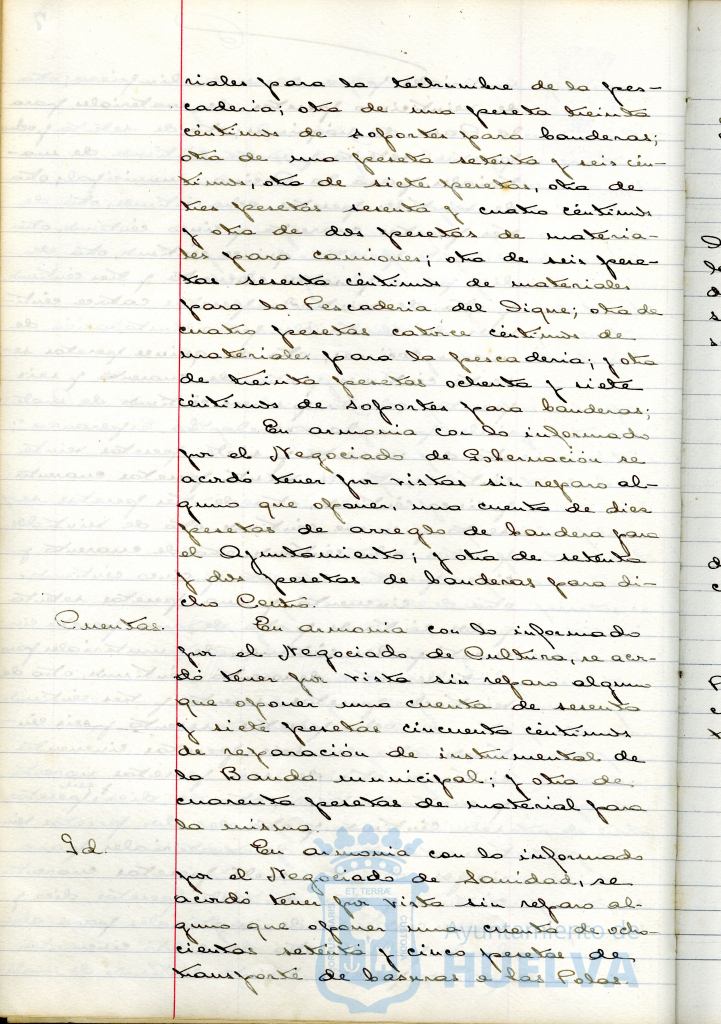 riales para la techumbre de la pes-
cadería; otra de una peseta treinta
céntimos de soportes para banderas;
otra de una peseta setenta y seis cén-
timos, otra de siete pesetas, otra de
tres pesetas sesenta y cuatro céntimos
y otra de dos pesetas de materia-
les para camiones; otra de seis pese-
tas sesenta céntimos de materiales
para la Pescadería del Dique; otra de
cuatro pesetas catorce céntimos de
materiales para la pescadería; y otra
de treinta pesetas ochenta y siete
céntimos de soportes para banderas;
En armonía con lo informado
por el Negociado de Gobernación se
acordó tener por vistas sin reparo al-
guno que oponer, una cuenta de diez
pesetas de arreglo de bandera para
el Ayuntamiento; y otra de setenta
y dos pesetas de banderas para di-
cho Centro.
Cuentas. En armonía con lo informado
por el Negociado de Cultura, se acor-
dó tener por vista sin reparo alguno
que oponer una cuenta de sesenta
y siete pesetas cincuenta céntimos
de reparación de instrumental de
la Banda municipal; y otra de
cuarenta pesetas de material para
la misma.
Id. En armonía con lo informado
por el Negociado de Sanidad, se
acordó tener por vista sin reparo al-
guno que oponer una cuenta de ocho-
cientas setenta y cinco pesetas de
transporte de basuras a las Polas.
Ayuntamiento de
HUELVA